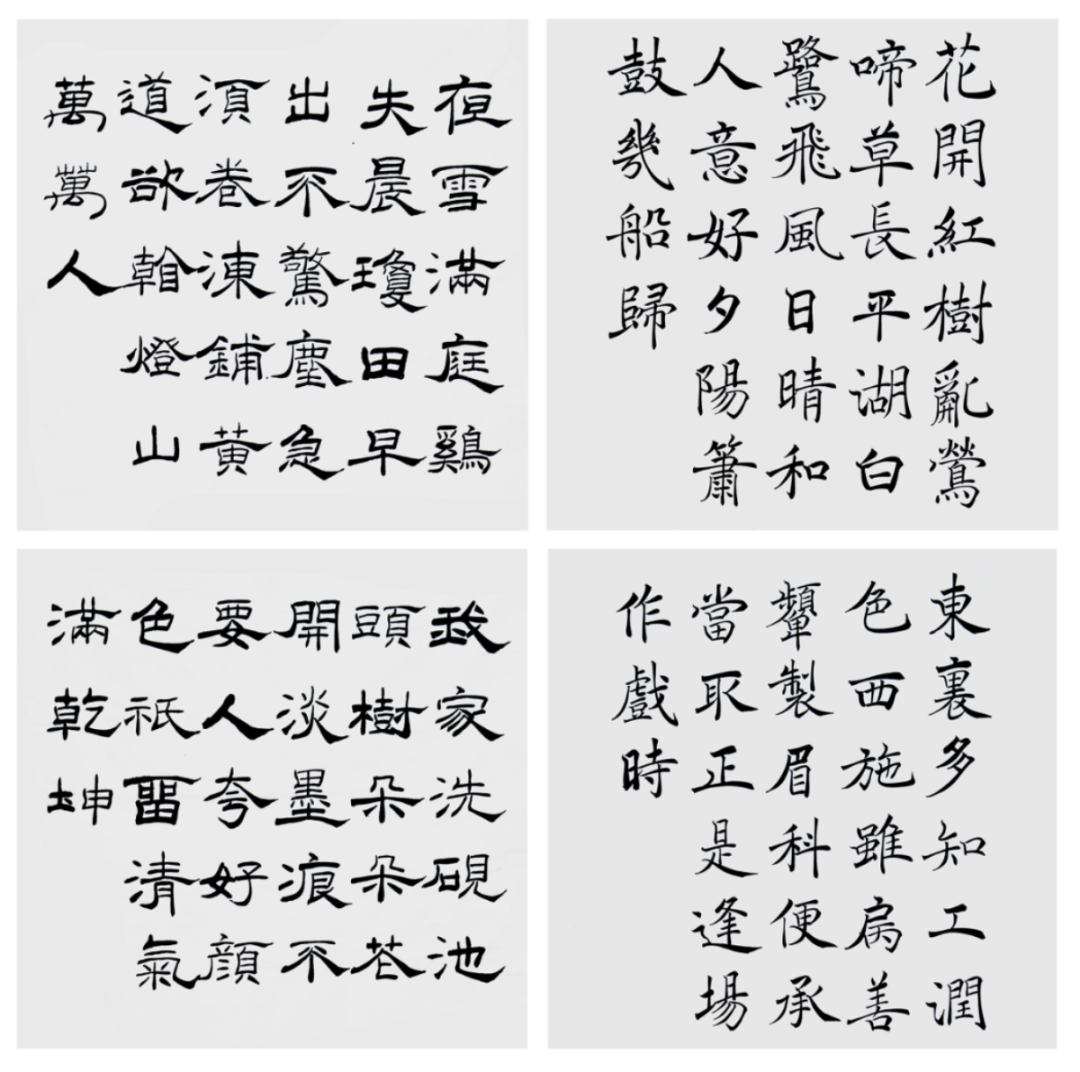 夜雪滿庭鷄
失晨瓊田早
出不驚塵急
須卷凍鋪黃
道欲看燈山
萬萬人
花開紅樹亂鶯
啼草長平湖白
鷺飛風日晴和
人意好夕陽簫
鼓幾船歸
我家洗硯池
頭樹朵朵花
開淡墨痕不
要人夸好顔
色祇留清氣
滿乾坤
東裏多知工潤
色西施雖扃善
顰製眉科便承
當取正是逢場
作戲時